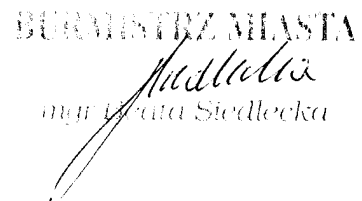 BURMISTRZ MIASTA
mgr Beata Siedlecka